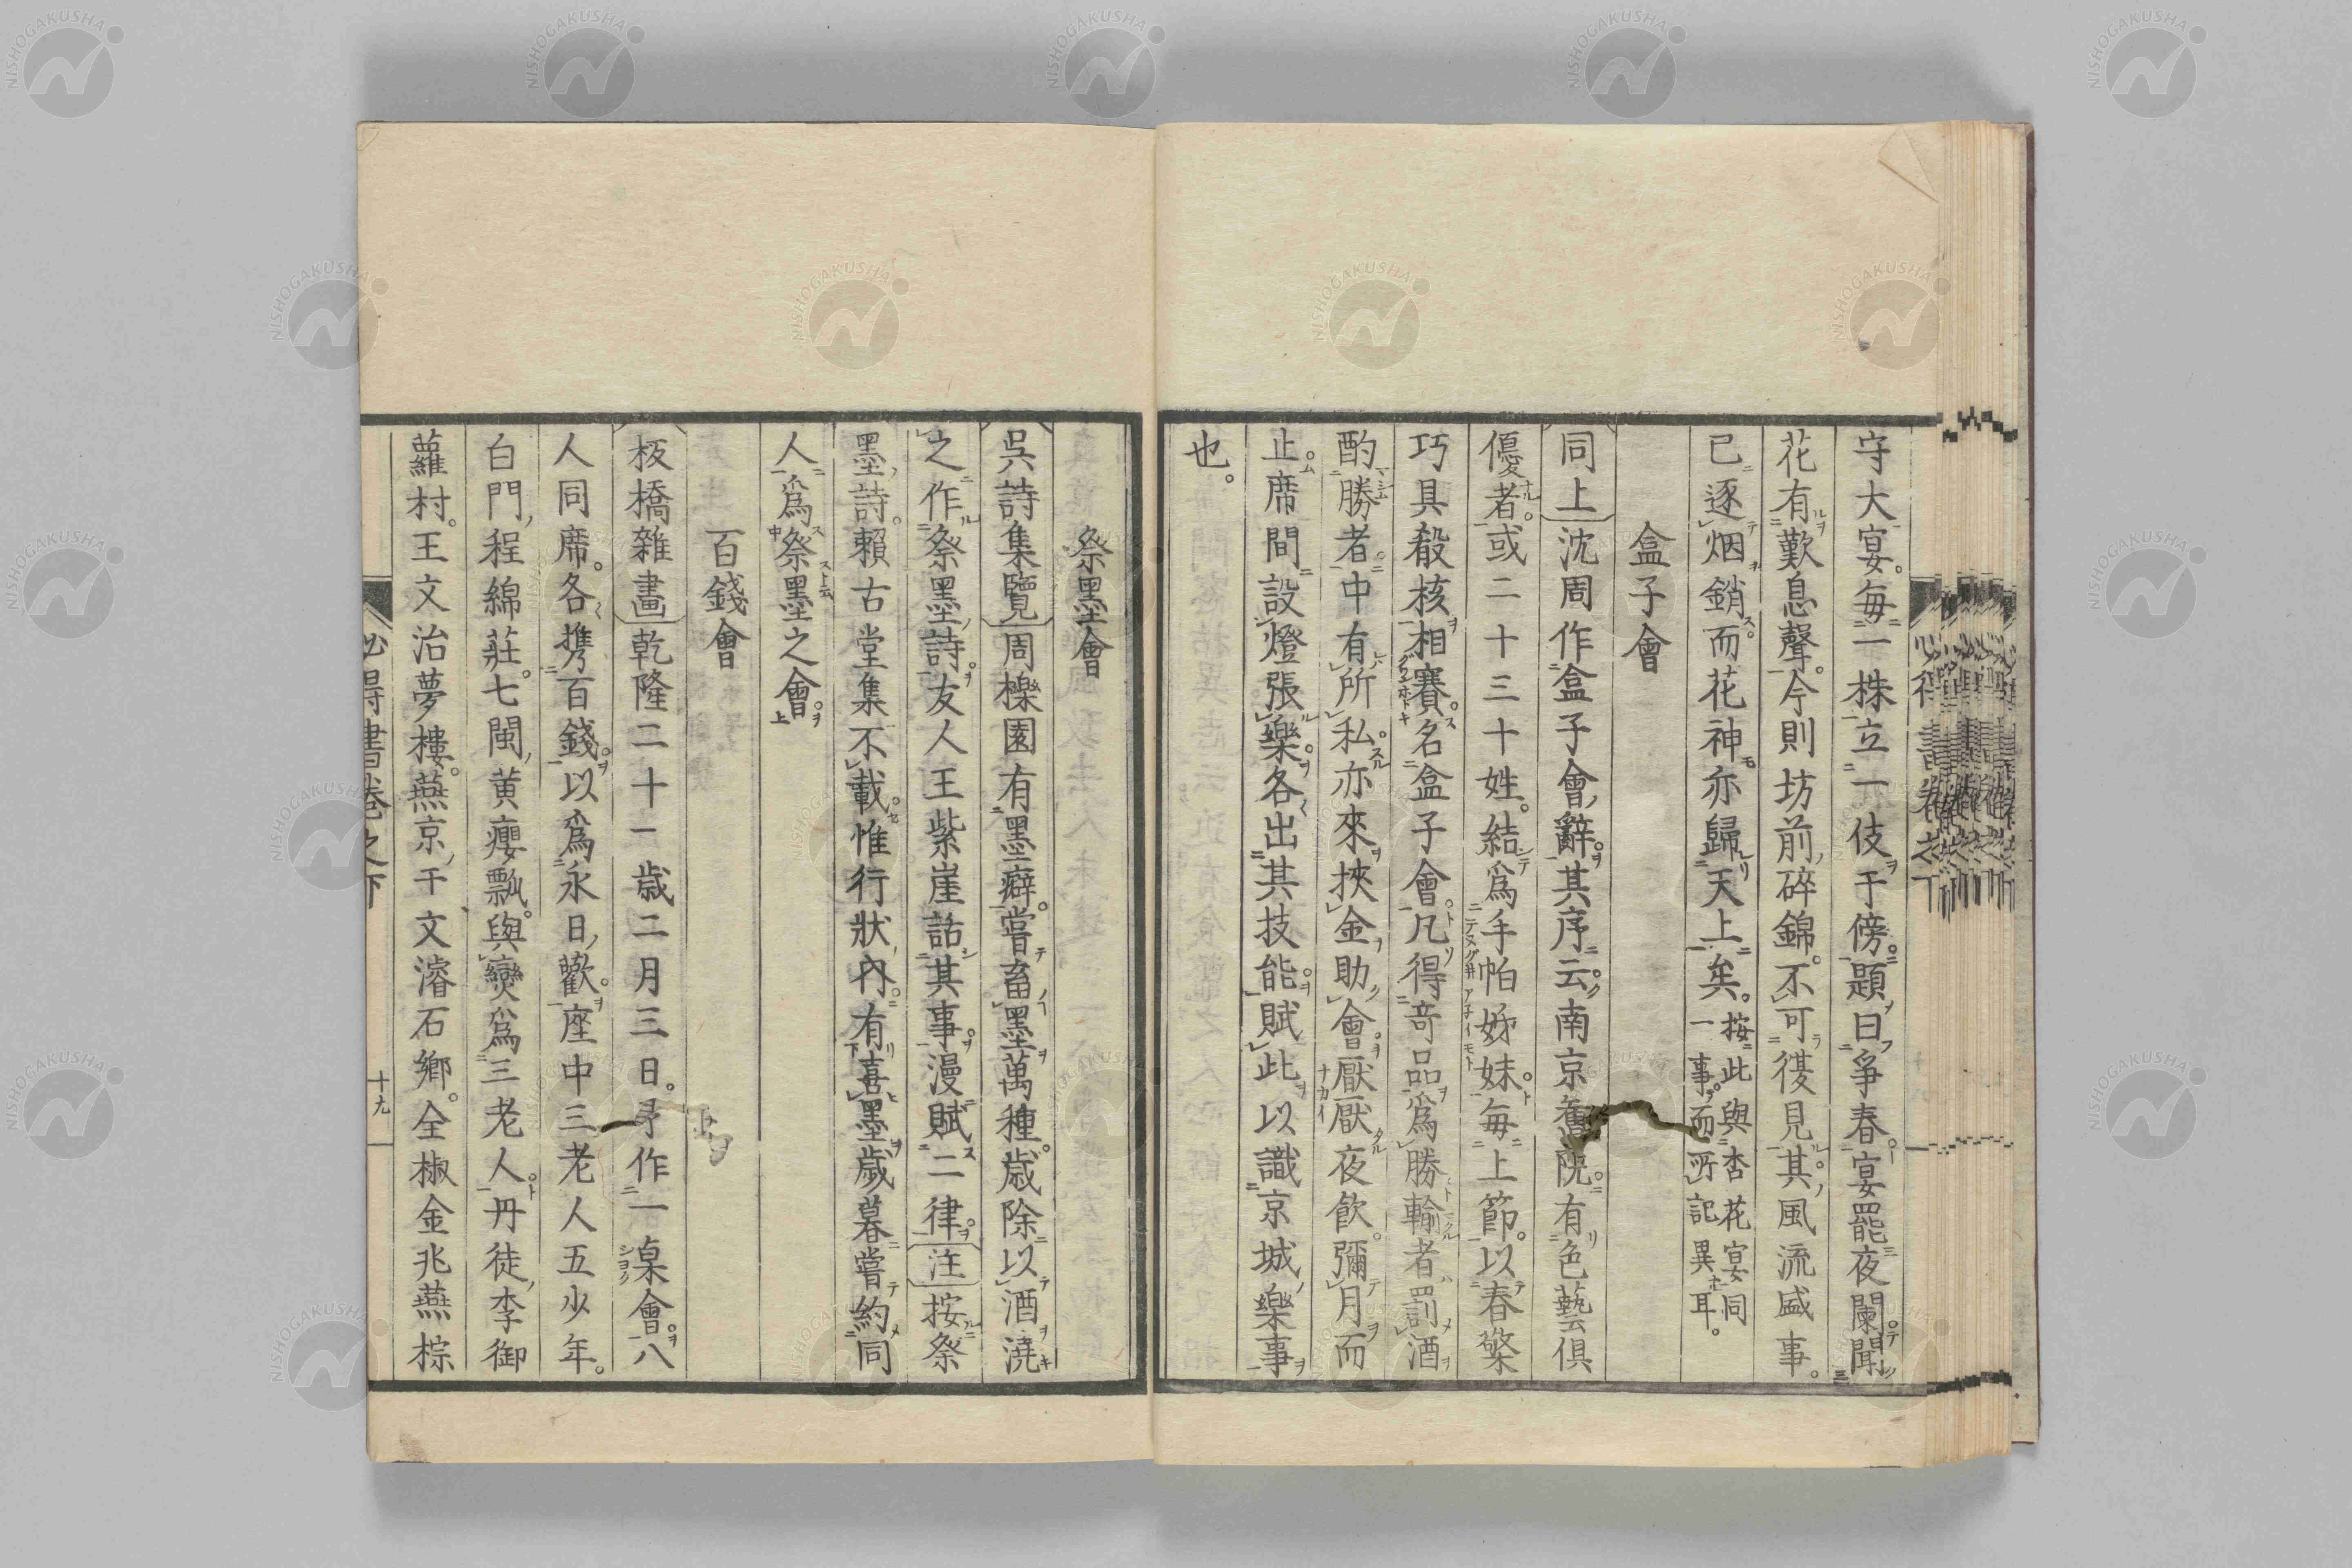 守大宴。每一株立一伎于傍。題曰爭春。宴罷夜闌。聞
花有歎息聲。今則坊前碎錦。不可復見其風流盛事。
已逐烟銷。而花神亦歸天上矣。按此與杏花宴同
一事。而所記異耳。
盒子會
同上沈周作盒子會辭。其序云。南京舊院。有色藝俱
優者。或二十三十姓。結爲手帕姊妹。每上節。以春檠
巧具殽核相賽。名盒子會。凡得竒品爲勝。輸者罰酒
酌勝者。中有所私。亦來挾金助會。厭厭夜飲。彌月而
止。席間設燈張樂。各出其技能。賦此以識京城樂事
也。
祭墨會
吳詩集覽周櫟園有墨癖。嘗畜墨萬種。歲除以酒澆
之。作祭墨詩。友人王紫崖話其事。漫賦二律。注按祭
墨詩。賴古堂集不載。惟行狀內。有喜墨歲暮嘗約同
人爲祭墨之會。
百錢會
板橋雜畫乾隆二十一歲二月三日。予作一桌會。八
人同席。各携百錢。以爲永日歡。座中三老人五少年。
白門程綿莊。七閩黄癭瓢。與燮爲三老人。丹徒李御
蘿村。王文治夢樓。燕京于文濬石鄉。全椒金兆燕棕
必得書卷之下
十九
NISHOGAKUSHA